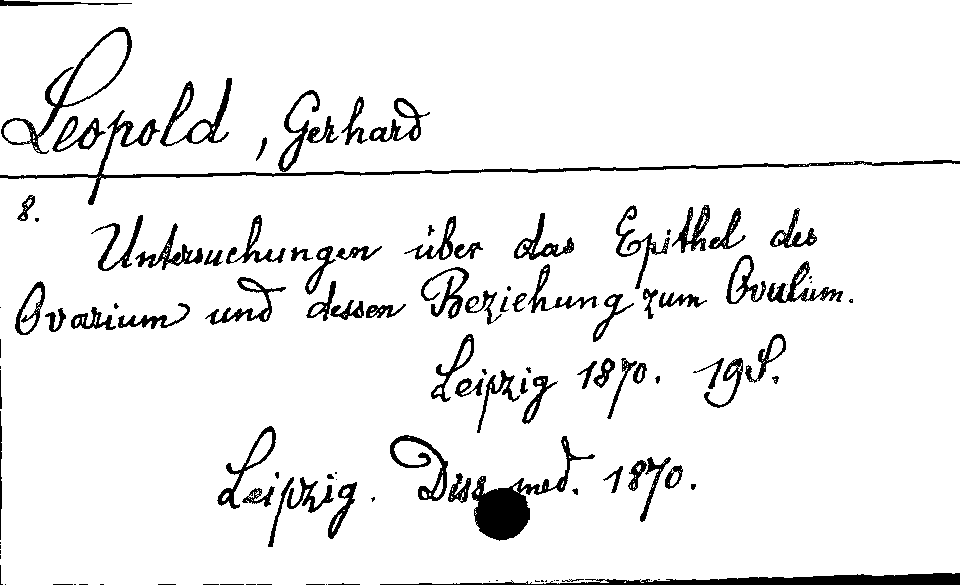 Leopold, Gerhard
8.
Untersuchungen über das Epithel des
Ovarium und dessen Beziehung zum Ovulum.
Leipzig 1870. 19 S.
Leipzig. Diss. med. 1870.